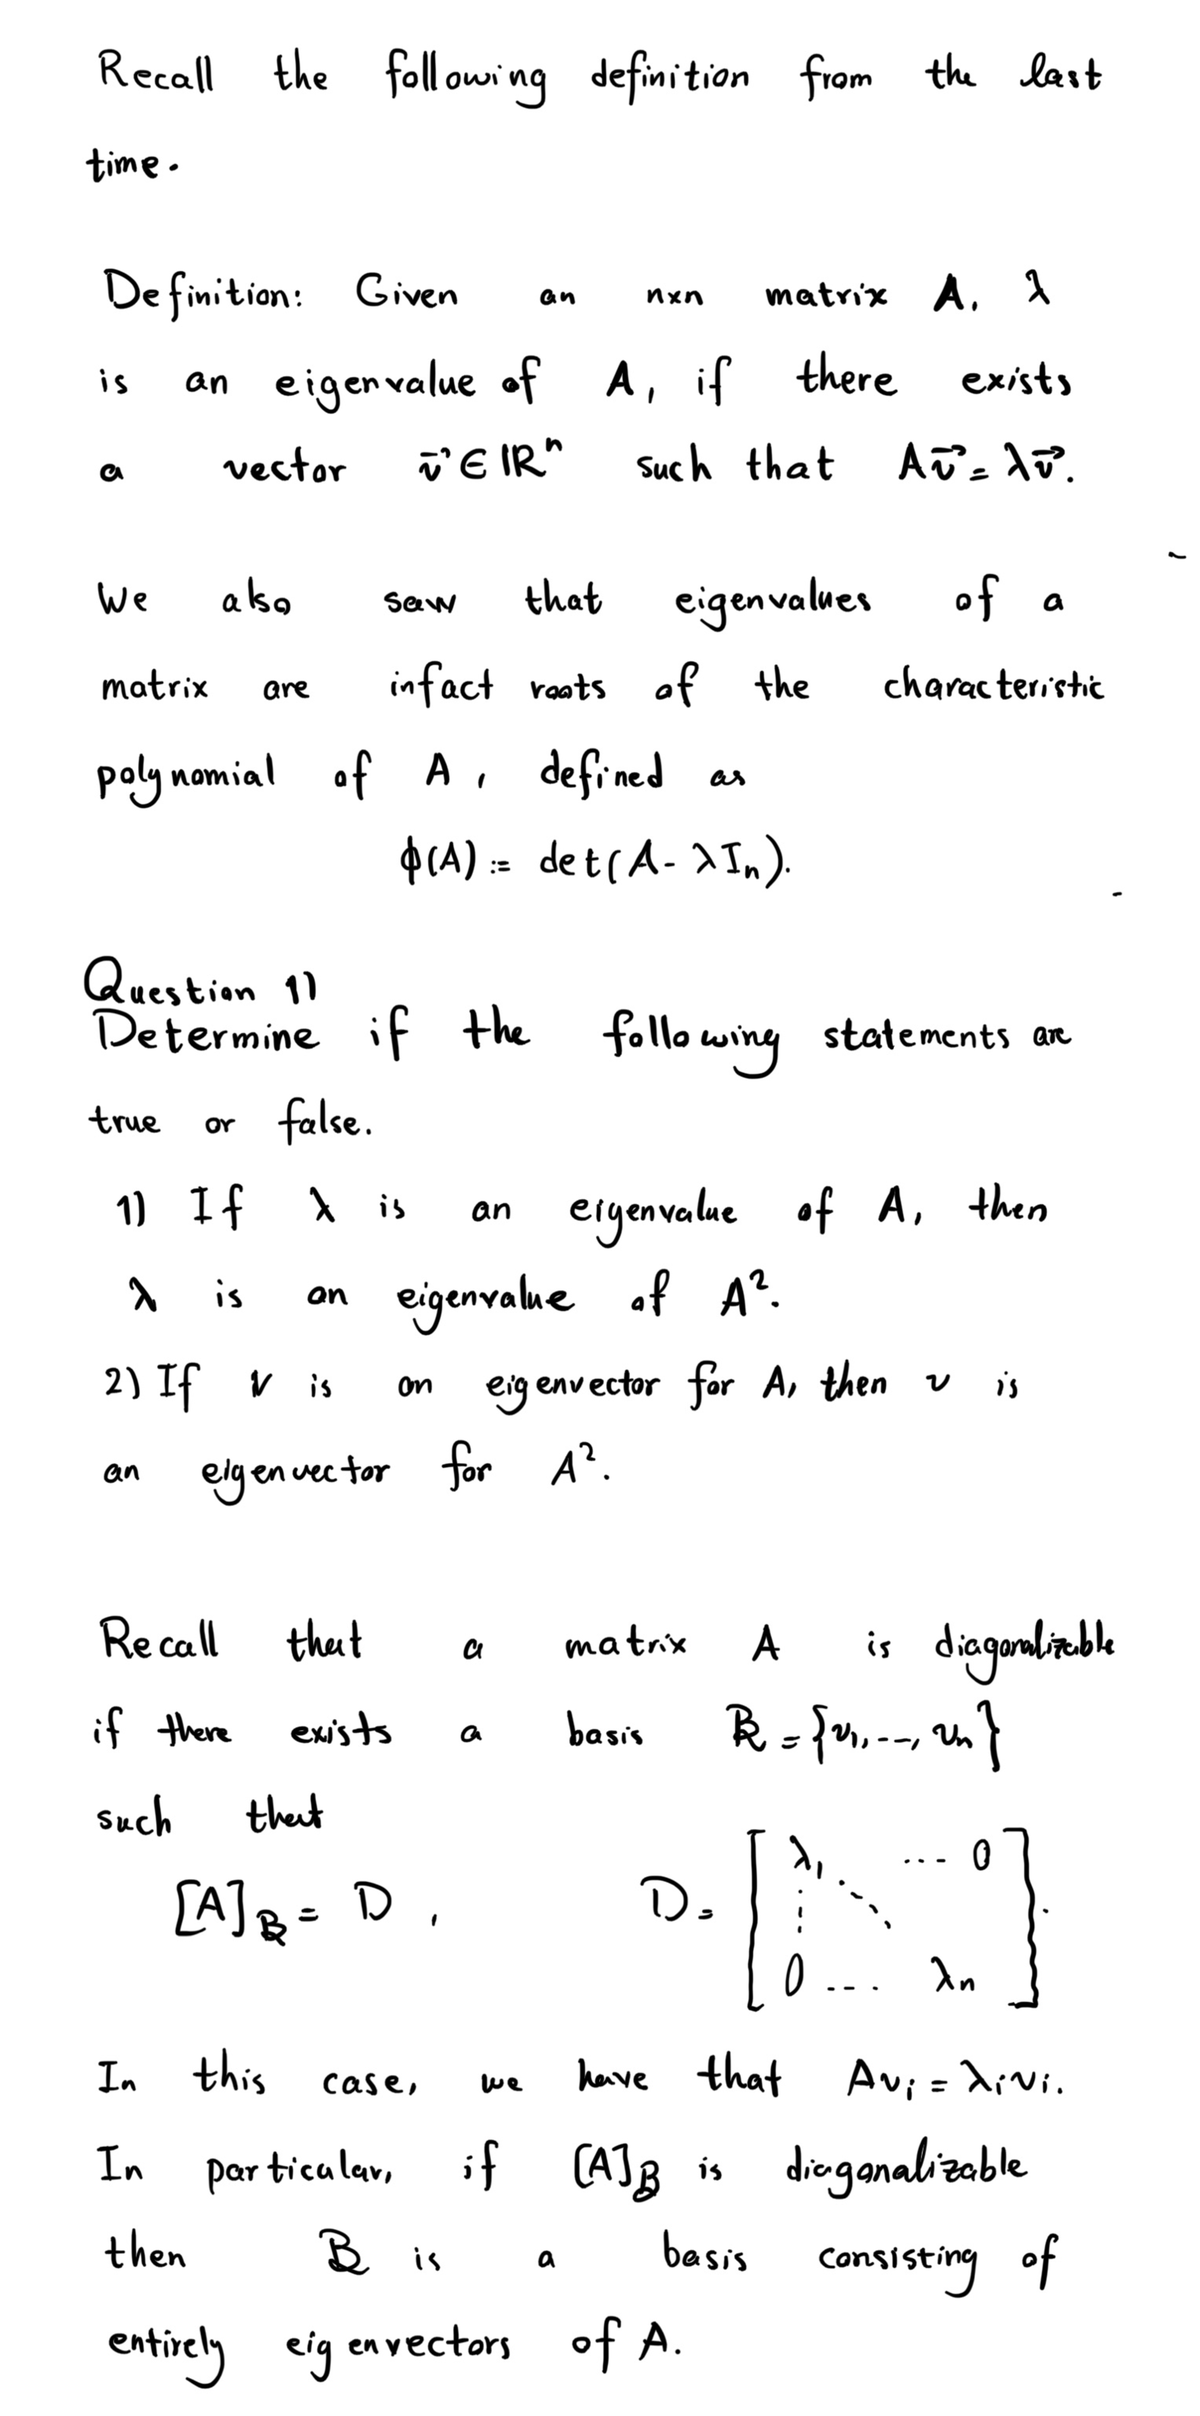 Recall the following definition from the last
time.
Definition: Given an nxn matrix A, λ
is an eigenvalue of A, if there exists
a vector v⃗ ∈ ℝⁿ such that Av⃗ = λv⃗.
We also saw that eigenvalues of a
matrix are infact roots of the characteristic
polynomial of A, defined as
ϕ(A) := det(A - λIₙ).
Question 1)
Determine if the following statements are
true or false.
1) If λ is an eigenvalue of A, then
λ is an eigenvalue of A².
2) If v is an eigenvector for A, then v is
an eigenvector for A².
Recall that a matrix A is diagonalizable
if there exists a basis B = {v₁, ..., vₙ}
such that
[A]_B = D , D = [λ₁ ... 0 ⋮ ⋱ 0 ... λₙ].
In this case, we have that Avᵢ = λᵢvᵢ.
In particular, if [A]_B is diagonalizable
then B is a basis consisting of
entirely eigenvectors of A.